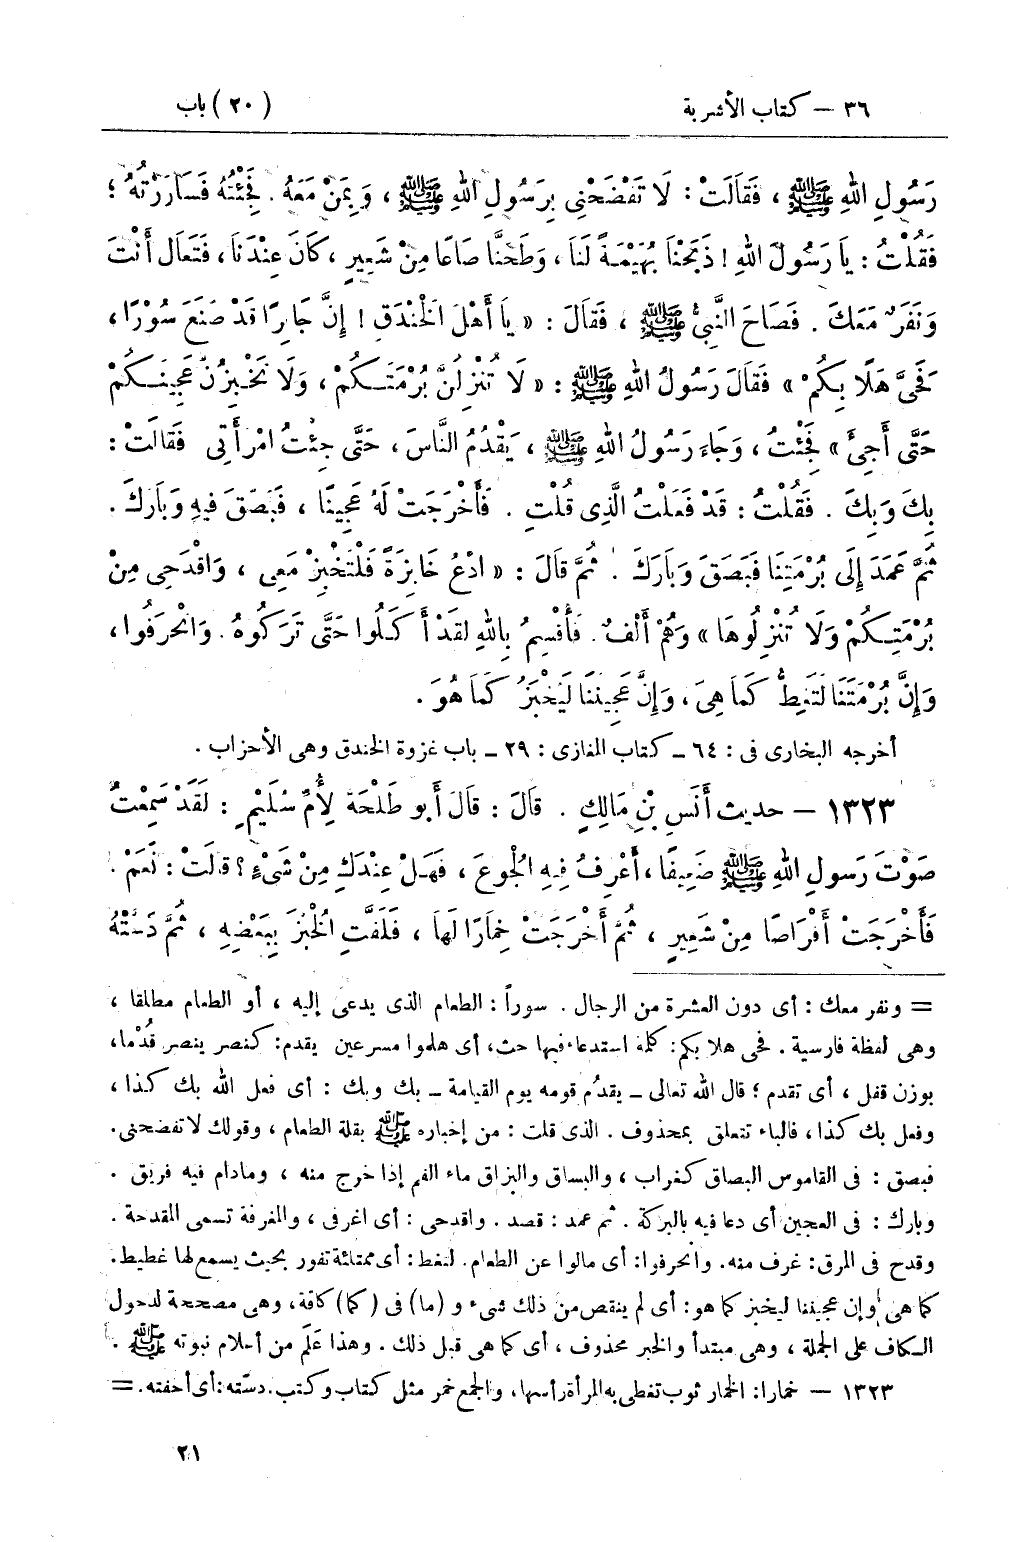 ٣٦ – كتاب الأشربة (٢٠) باب
رَسُولِ اللهِ ﷺ ، فَقَالَتْ : لَا تَفْضَحْنِى بِرَسُولِ اللهِ ﷺ ، وَبِمَنْ مَعَهُ . فَجِئْتُهُ فَسَارَرْتُهُ ؛
فَقُلْتُ : يَا رَسُولَ اللهِ ! ذَبَحْنَا بُهَيْمَةً لَنَا ، وَطَحَنَّا صَاعًا مِنْ شَعِيرٍ ، كَانَ عِنْدَنَا ، فَتَعَالَ أَنْتَ
وَنَفَرٌ مَعَكَ . فَصَاحَ النَّبِىُّ ﷺ ، فَقَالَ : « يَا أَهْلَ الْخَنْدَقِ ! إِنَّ جَابِرًا قَدْ صَنَعَ سُوْرًا ،
فَحَىَّ هَلًا بِكُمْ » فَقَالَ رَسُولُ اللهِ ﷺ : « لَا تُنْزِلُنَّ بُرْمَتَكُمْ ، وَلَا تَخْبِزُنَّ عَجِينَكُمْ
حَتَّى أَجِىءَ » فَجِئْتُ ، وَجَاءَ رَسُولُ اللهِ ﷺ ، يَقْدُمُ النَّاسَ ، حَتَّى جِئْتُ امْرَأَتِى فَقَالَتْ :
بِكَ وَبِكَ . فَقُلْتُ : قَدْ فَعَلْتُ الَّذِى قُلْتِ . فَأَخْرَجَتْ لَهُ عَجِينًا ، فَبَصَقَ فِيهِ وَبَارَكَ .
ثُمَّ عَمَدَ إِلَى بُرْمَتِنَا فَبَصَقَ وَبَارَكَ . ثُمَّ قَالَ : « ادْعُ خَابِزَةً فَلْتَخْبِزْ مَعِى ، وَاقْدَحِى مِنْ
بُرْمَتِكُمْ وَلَا تُنْزِلُوهَا » وَهُمْ أَلْفٌ . فَأُقْسِمُ بِاللهِ لَقَدْ أَكَلُوا حَتَّى تَرَكُوهُ . وَانْحَرَفُوا ،
وَإِنَّ بُرْمَتَنَا لَتَغِطُّ كَمَا هِىَ ، وَإِنَّ عَجِينَنَا لَيُخْبَزُ كَمَا هُوَ .
أخرجه البخارى فى : ٦٤ – كتاب المغازى : ٢٩ – باب غزوة الخندق وهى الأحزاب .
١٣٢٣ – حديث أَنَسِ بْنِ مَالِكٍ . قَالَ : قَالَ أَبُو طَلْحَةَ لِأُمِّ سُلَيْمٍ : لَقَدْ سَمِعْتُ
صَوْتَ رَسُولِ اللهِ ﷺ ضَعِيفًا ، أَعْرِفُ فِيهِ الْجُوعَ ، فَهَلْ عِنْدَكِ مِنْ شَىْءٍ ؟ قَالَتْ : نَعَمْ .
فَأَخْرَجَتْ أَقْرَاصًا مِنْ شَعِيرٍ ، ثُمَّ أَخْرَجَتْ خِمَارًا لَهَا ، فَلَفَّتِ الْخُبْزَ بِبَعْضِهِ ، ثُمَّ دَسَّتْهُ
= ونفر معك : أى دون العشرة من الرجال . سوراً : الطعام الذى يدعى إليه ، أو الطعام مطلقا ،
وهى لفظة فارسية . فحى هلا بكم: كلمة استدعاء فيها حث، أى هلموا مسرعين يقدم: كنصر ينصر قُدْما،
بوزن قفل ، أى تقدم ؛ قال الله تعالى – يقدُم قومه يوم القيامة – بك وبك : أى فعل الله بك كذا ،
وفعل بك كذا ، فالباء تتعلق بمحذوف . الذى قلت : من إخباره ﷺ بقلة الطعام ، وقولك لا تفضحنى.
فبصق : فى القاموس البصاق كغراب ، والبساق والبزاق ماء الفم إذا خرج منه ، ومادام فيه فريق .
وبارك : فى العجين أى دعا فيه بالبركة . ثم عمد : قصد . واقدحى : أى اغرفى ، والمغرفة تسمى المقدحة .
وقدح فى المرق: غرف منه. وانحرفوا: أى مالوا عن الطعام. لتغط: أى ممتلئة تفور بحيث يسمع لها غطيط.
كما هى وإن عجيننا ليخبز كما هو: أى لم ينقص من ذلك شىء و (ما) فى (كما) كافة، وهى مصححة لدخول
الكاف على الجملة ، وهى مبتدأ والخبر محذوف ، أى كما هى قبل ذلك . وهذا عَلَم من أعلام نبوته ﷺ .
١٣٢٣ – خمارا: الخمار ثوب تغطى به المرأة رأسها، والجمع خمر مثل كتاب وكتب. دسّته: أى أخفته. =
٢١